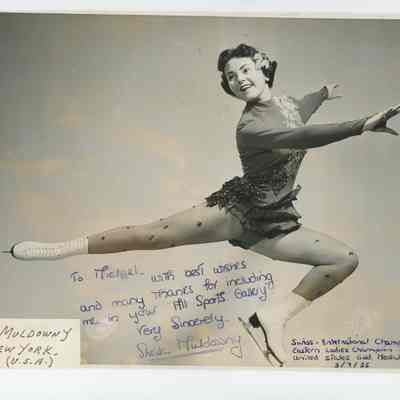 To Michael. with best wishes
and many thanks for including
me in your All Sports Gallery
Very Sincerely.
Muldowny
MULDOWNY
NEW YORK.
(U.S.A.)
Swiss - International Champ
Eastern Ladies Champion
United States Gold Medal